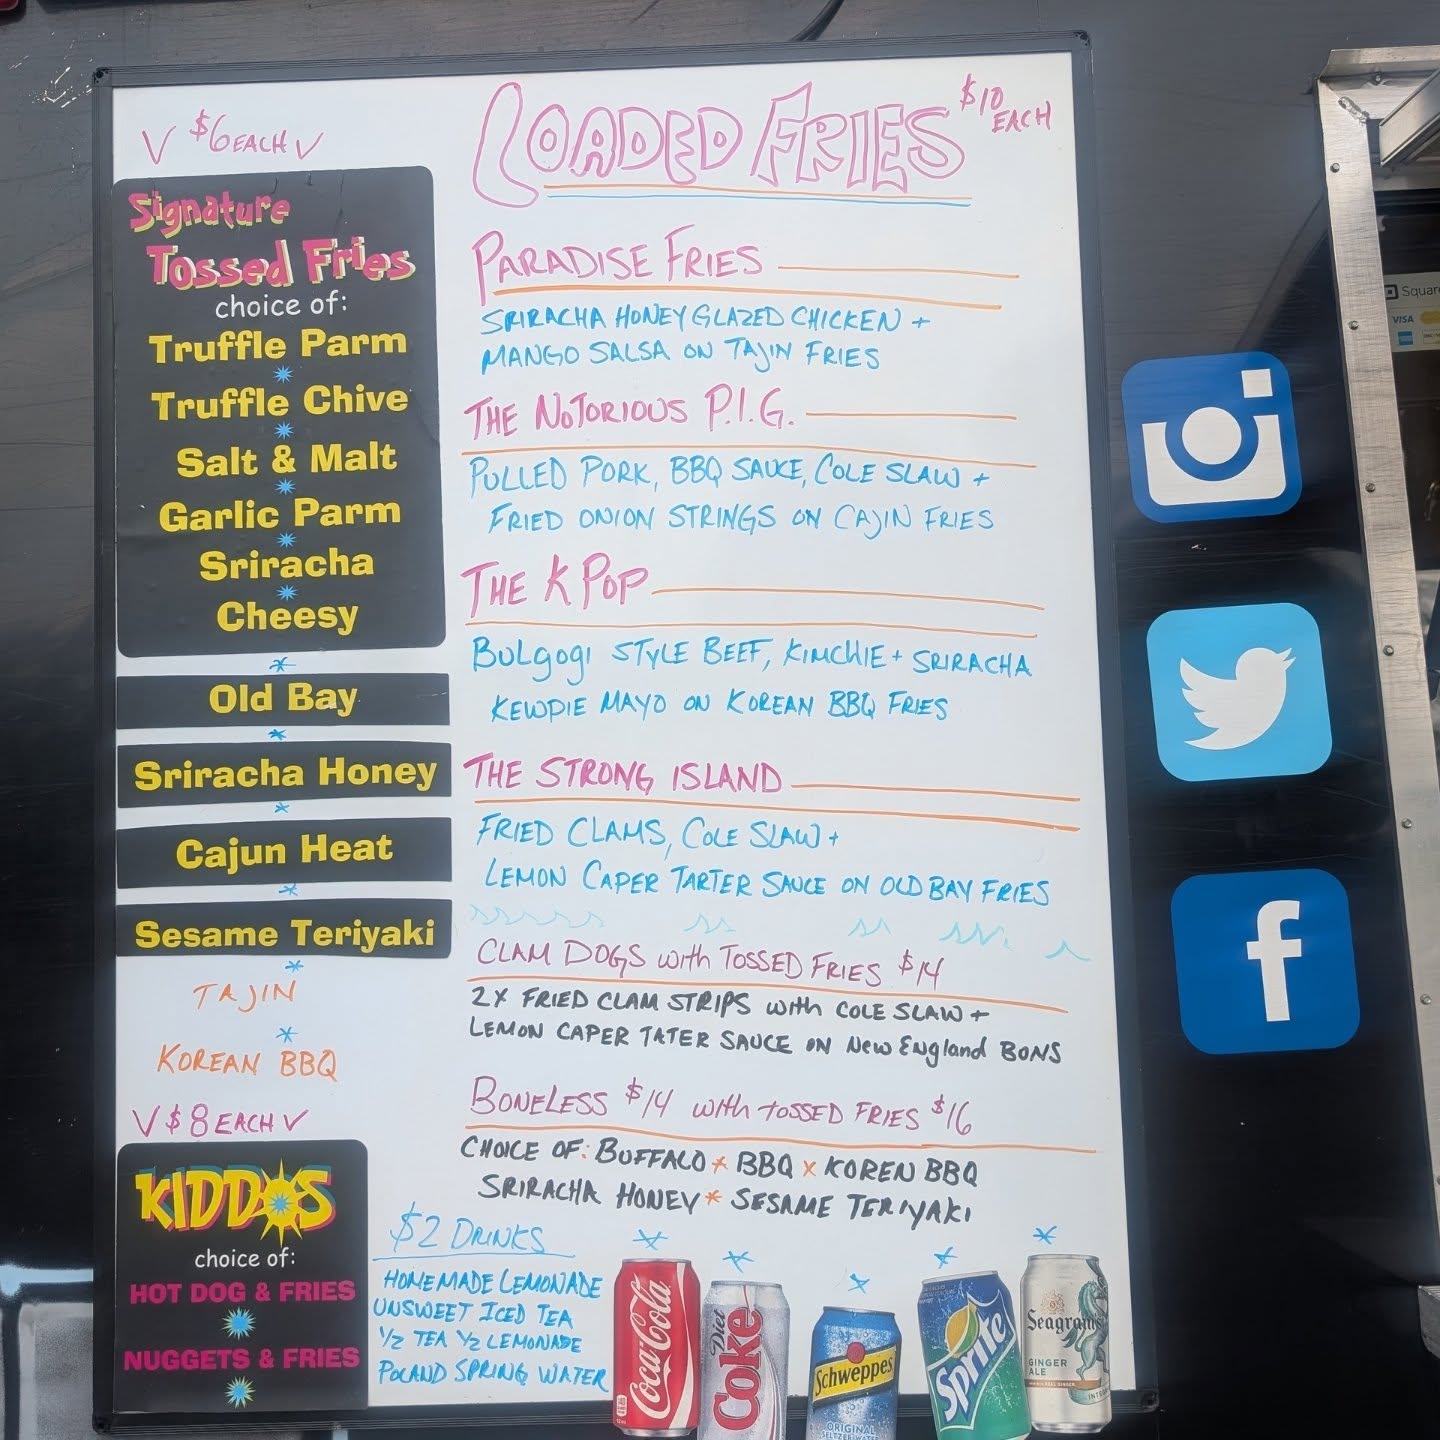 V $6 EACH V
Signature
Tossed Fries
choice of:
Truffle Parm
Truffle Chive
Salt & Malt
Garlic Parm
Sriracha
Cheesy
Old Bay
Sriracha Honey
Cajun Heat
Sesame Teriyaki
TAJIN
KOREAN BBQ
V $8 EACH V
KIDDOS
choice of:
HOT DOG & FRIES
NUGGETS & FRIES
LOADED FRIES $10 EACH
PARADISE FRIES
SRIRACHA HONEY GLAZED CHICKEN +
MANGO SALSA ON TAJIN FRIES
THE NOTORIOUS P.I.G.
PULLED PORK, BBQ SAUCE, COLE SLAW +
FRIED ONION STRINGS ON CAJIN FRIES
THE K POP
BULgogi STYLE BEEF, KIMCHIE + SRIRACHA
KEWPIE MAYO ON KOREAN BBQ FRIES
THE STRONG ISLAND
FRIED CLAMS, COLE SLAW +
LEMON CAPER TARTER SAUCE ON OLD BAY FRIES
CLAM DOGS with TOSSED FRIES $14
2X FRIED CLAM STRIPS with COLE SLAW +
LEMON CAPER TATER SAUCE ON New England BONS
BONELESS $14 with tOSSED FRIES $16
CHOICE OF: BUFFALO * BBQ x KOREN BBQ
SRIRACHA HONEY * SESAME TERIYAKI
$2 DRINKS
HOMEMADE LEMONADE
UNSWEET ICED TEA
1/2 TEA 1/2 LEMONADE
POLAND SPRING WATER
Coca-Cola
Diet
Coke
Schweppes
ORIGINAL
SELTZER WATER
Sprite
Seagram's
GINGER
ALE
Square
VISA